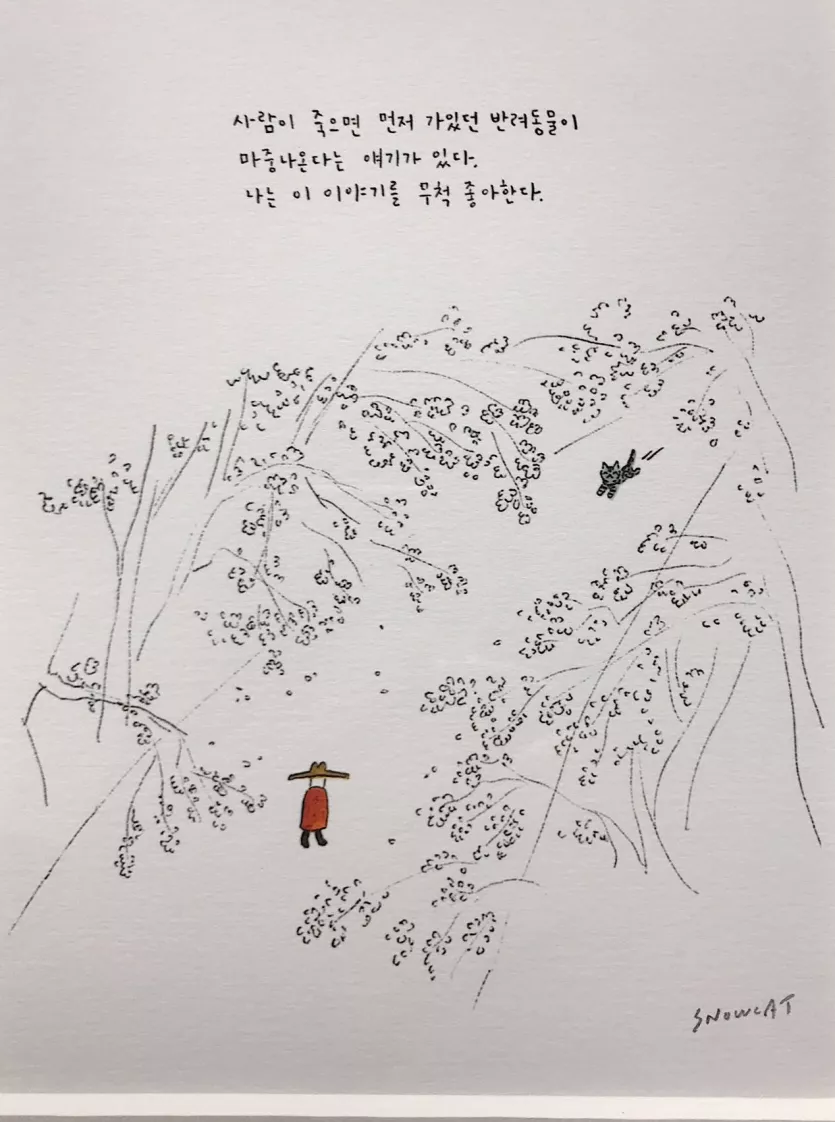 사람이 죽으면 먼저 가있던 반려동물이
마중나온다는 얘기가 있다.
나는 이 이야기를 무척 좋아한다.
SNOWCAT